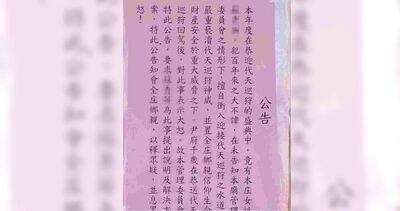 公告
本年度在恭迎代天巡狩的盛典中，竟有本庄女
犯百年來之大不諱，在未告知本廟管理
委員會之情形下，擅自衝入迎接代天巡狩之水道
嚴重褻瀆代天巡狩神威，並置全庄鄉親信仰生
財產安全於重大威脅之下。尹府千歲在恭送代天
巡狩回駕後，對此事表示大怒。故本管理委員
特此公告，要求為此事提出說明及解決方
案，特此公告知會全庄鄉親，以釋眾疑，並息眾
怒！